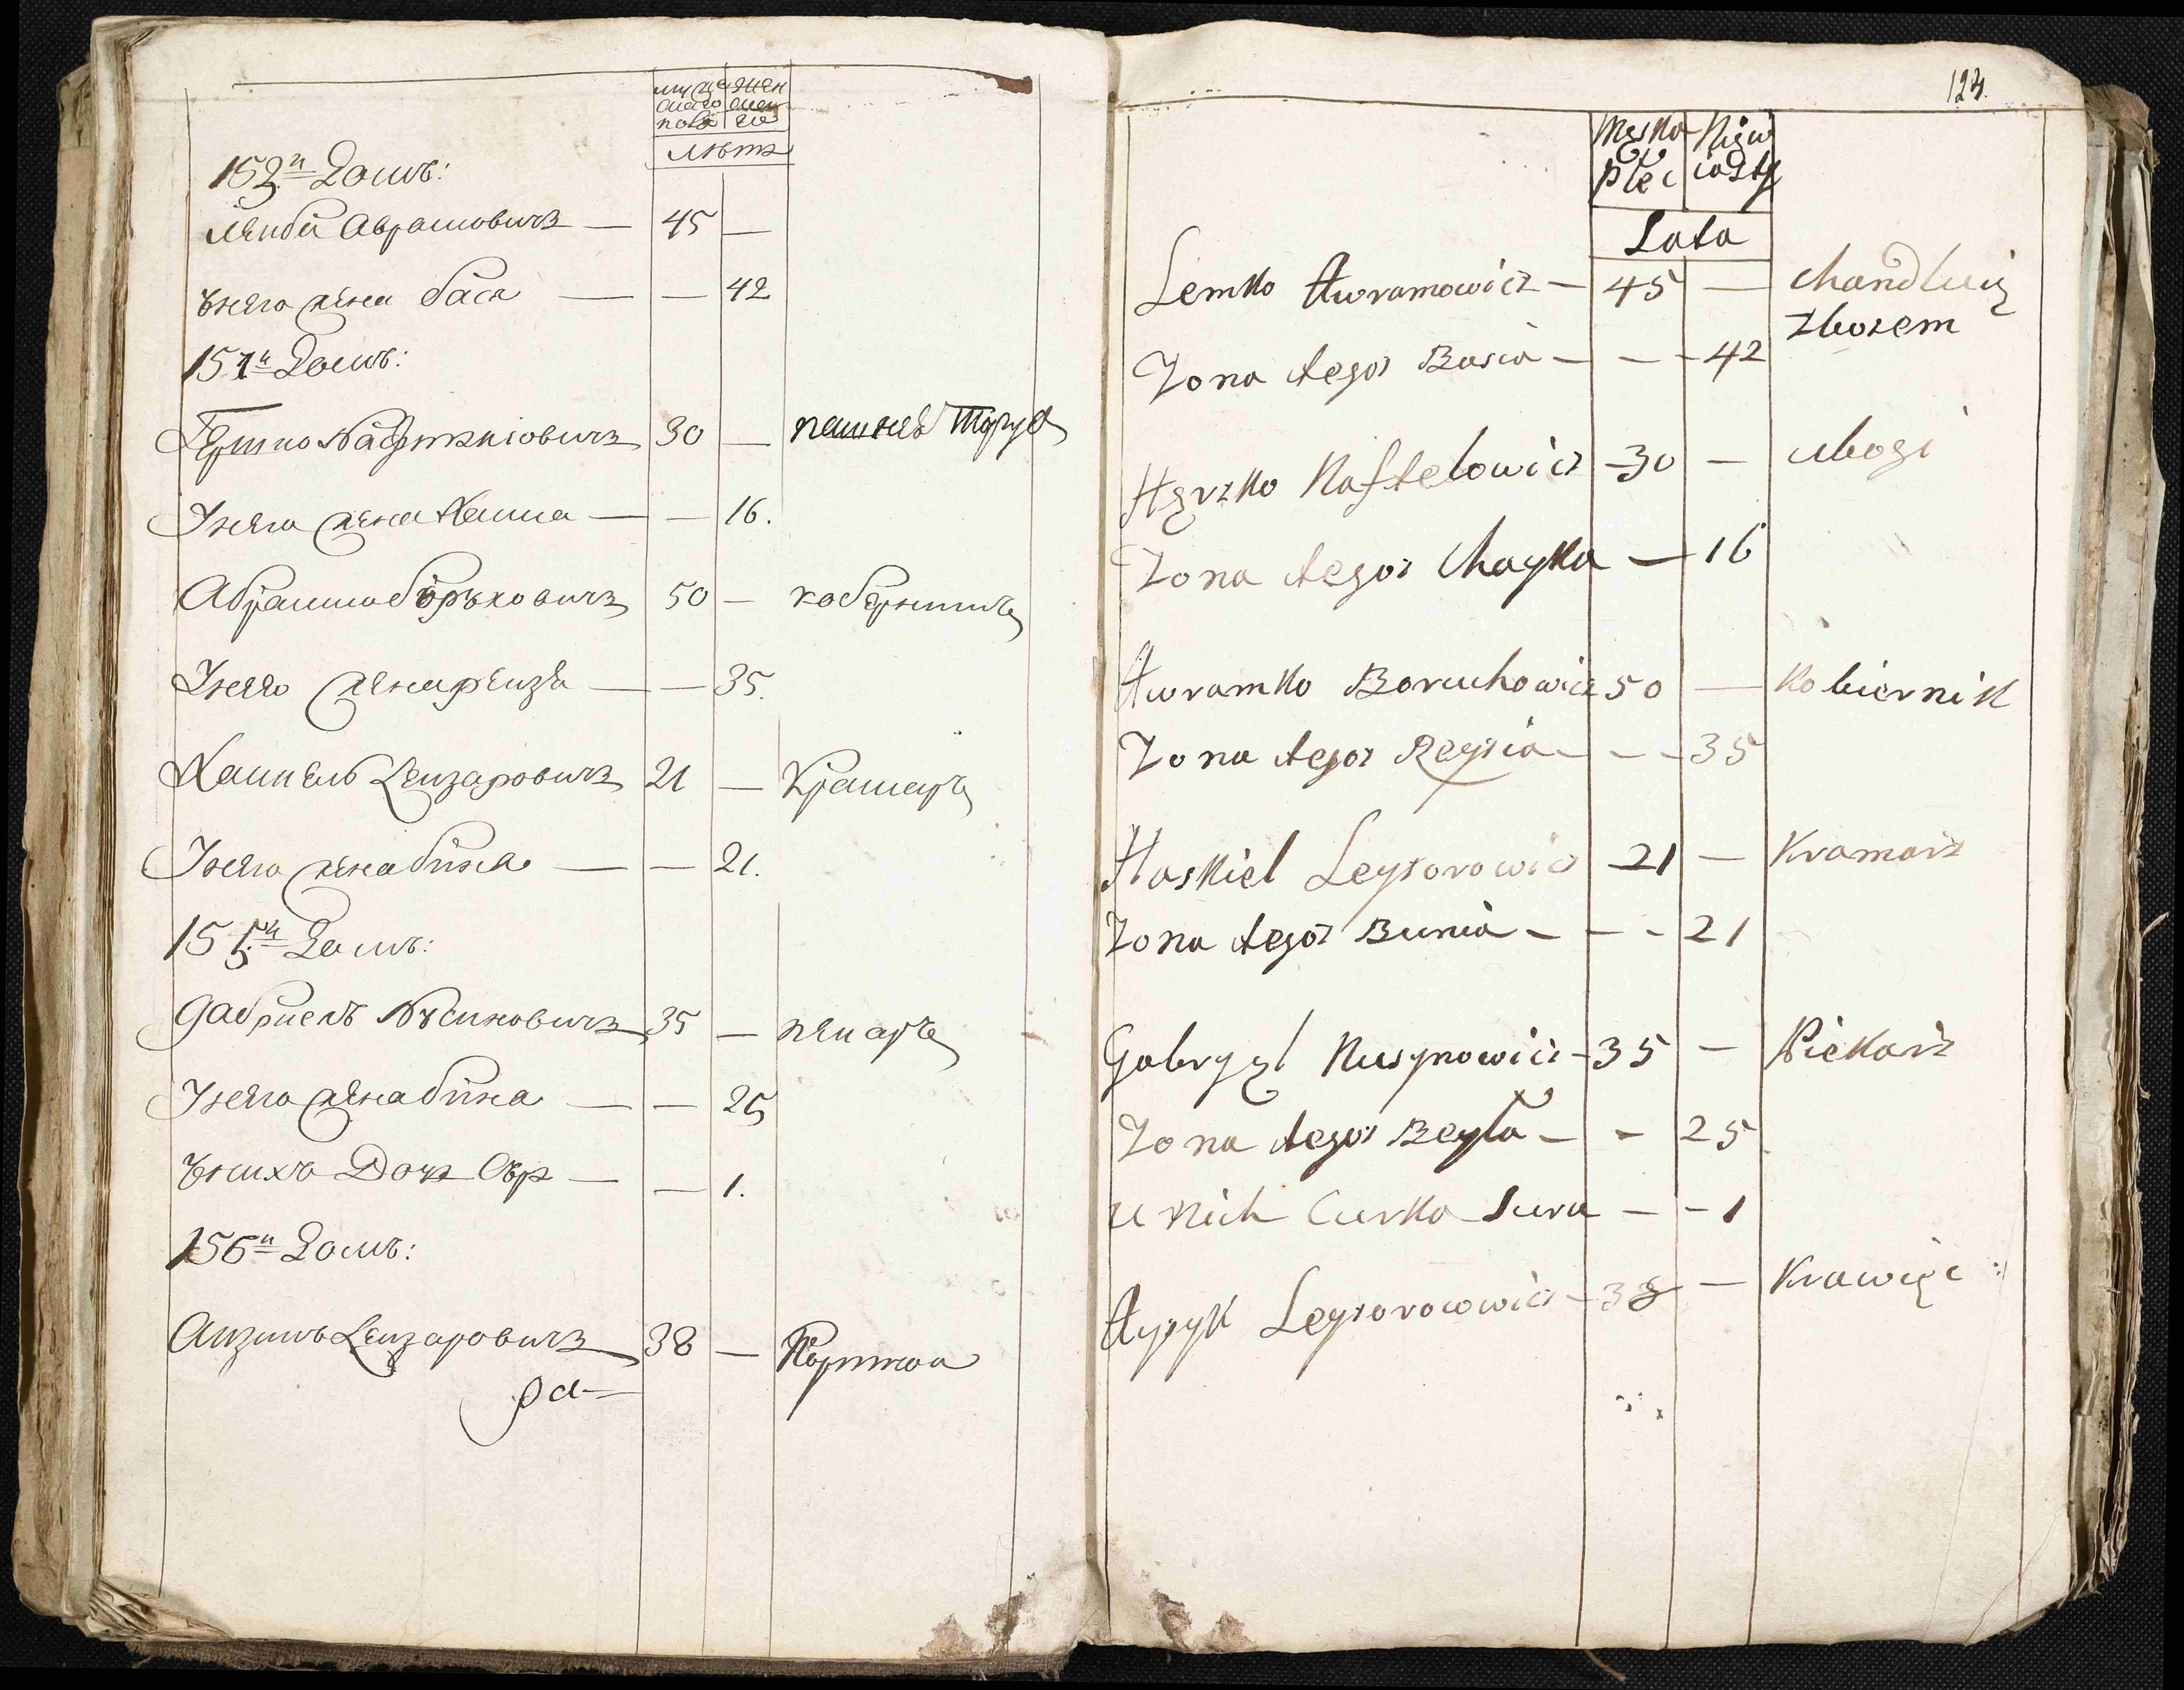 мужескаго пола женскаго
лѣтъ
153й Домъ:
Лейба Аврамовичъ — 45 —
Унего жена бася — — 42
154й Домъ:
Гершко Нафтэліовичъ 30 —
Унего жена Хашка — — 16.
Абрамко боръховичъ 50 — коберникъ
Унего жена рейзя — — 35.
Хацкель Лейзаровичъ 21 — Крамаръ
Унего жена бина — — 21.
155й Домъ:
Габриель Нусиновичъ 35 — пекаръ
Унего жена бина — — 25
Унихъ Дочь Сѣр — — 1.
156й Домъ:
Айзикъ Лейзаровичъ 38 — Портной
124.
Męska Płeć Niewiasty
Lata
Lemko Awramowicz — 45 — Chandluię
zborem
Zona tegoż Basia — — — 42
Herzko Naftelowicz — 30 — ubogi
Zona tegoż Chayka — 16
Awramko Boruchowicz 50 — Kobiernik
Zona tegoż Reysia — — — 35
Haskiel Leyzorowicz — 21 — Kramarz
Zona tegoż Bunia — — — 21
Gabryel Nusynowicz — 35 — Piekarz
Zona tegoż Beyla — — 25
u Nich Curka Sura — — 1
Ayzyk Leyzorowowicz — 38 — Krawięc